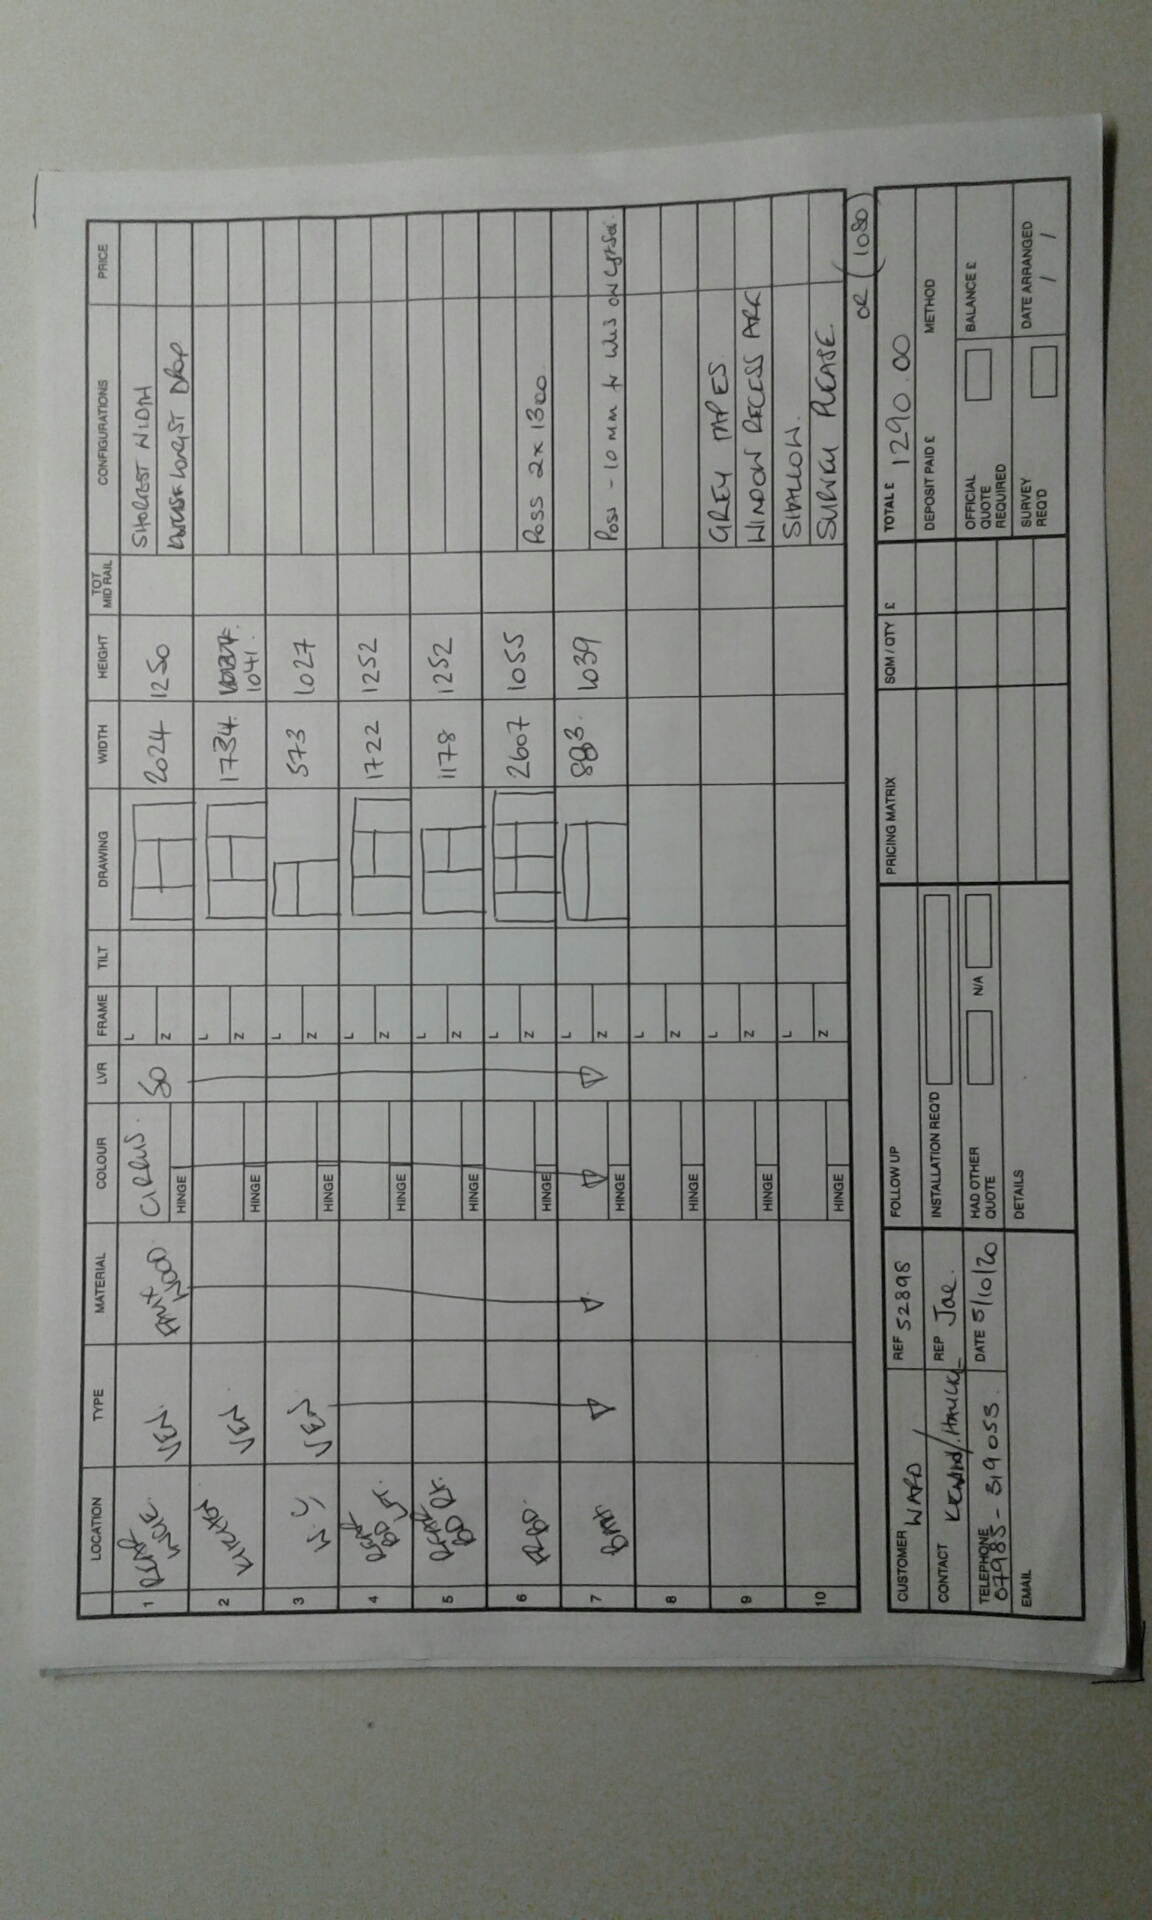 LOCATION TYPE MATERIAL COLOUR LVR FRAME TILT DRAWING WIDTH HEIGHT TOT MID RAIL CONFIGURATIONS PRICE
1 REAR VEN. FAUX WOOD CIRRUS. 50 L 2024 1250 SHORTEST WIDTH
HINGE Z LONGEST DROP
2 KITCHEN VEN. L 1734. 1041.
HINGE Z
3 W.C VEN. L 573 1027
HINGE Z
4 REAR BD LFT. L 1722 1252
HINGE Z
5 REAR BD RT. L 1178 1252
HINGE Z
6 L 2607 1055
HINGE Z POSS 2 x 1300
7 BATH L 883. 1039
HINGE Z POSS - 10 MM
8 L
HINGE Z
9 L GREY TAPES
HINGE Z WINDOW RECESS ARE
10 L SHALLOW.
HINGE Z SURVEY PLEASE.
OR (1080
CUSTOMER WARD REF 52898
CONTACT REP Joe.
TELEPHONE 07985 - 319053 DATE 5/10/20
EMAIL
FOLLOW UP
INSTALLATION REQ'D
HAD OTHER QUOTE N/A
DETAILS
PRICING MATRIX SQM / QTY £
TOTAL £ 1290.00
DEPOSIT PAID £ METHOD
OFFICIAL QUOTE REQUIRED BALANCE £
SURVEY REQ'D DATE ARRANGED / /